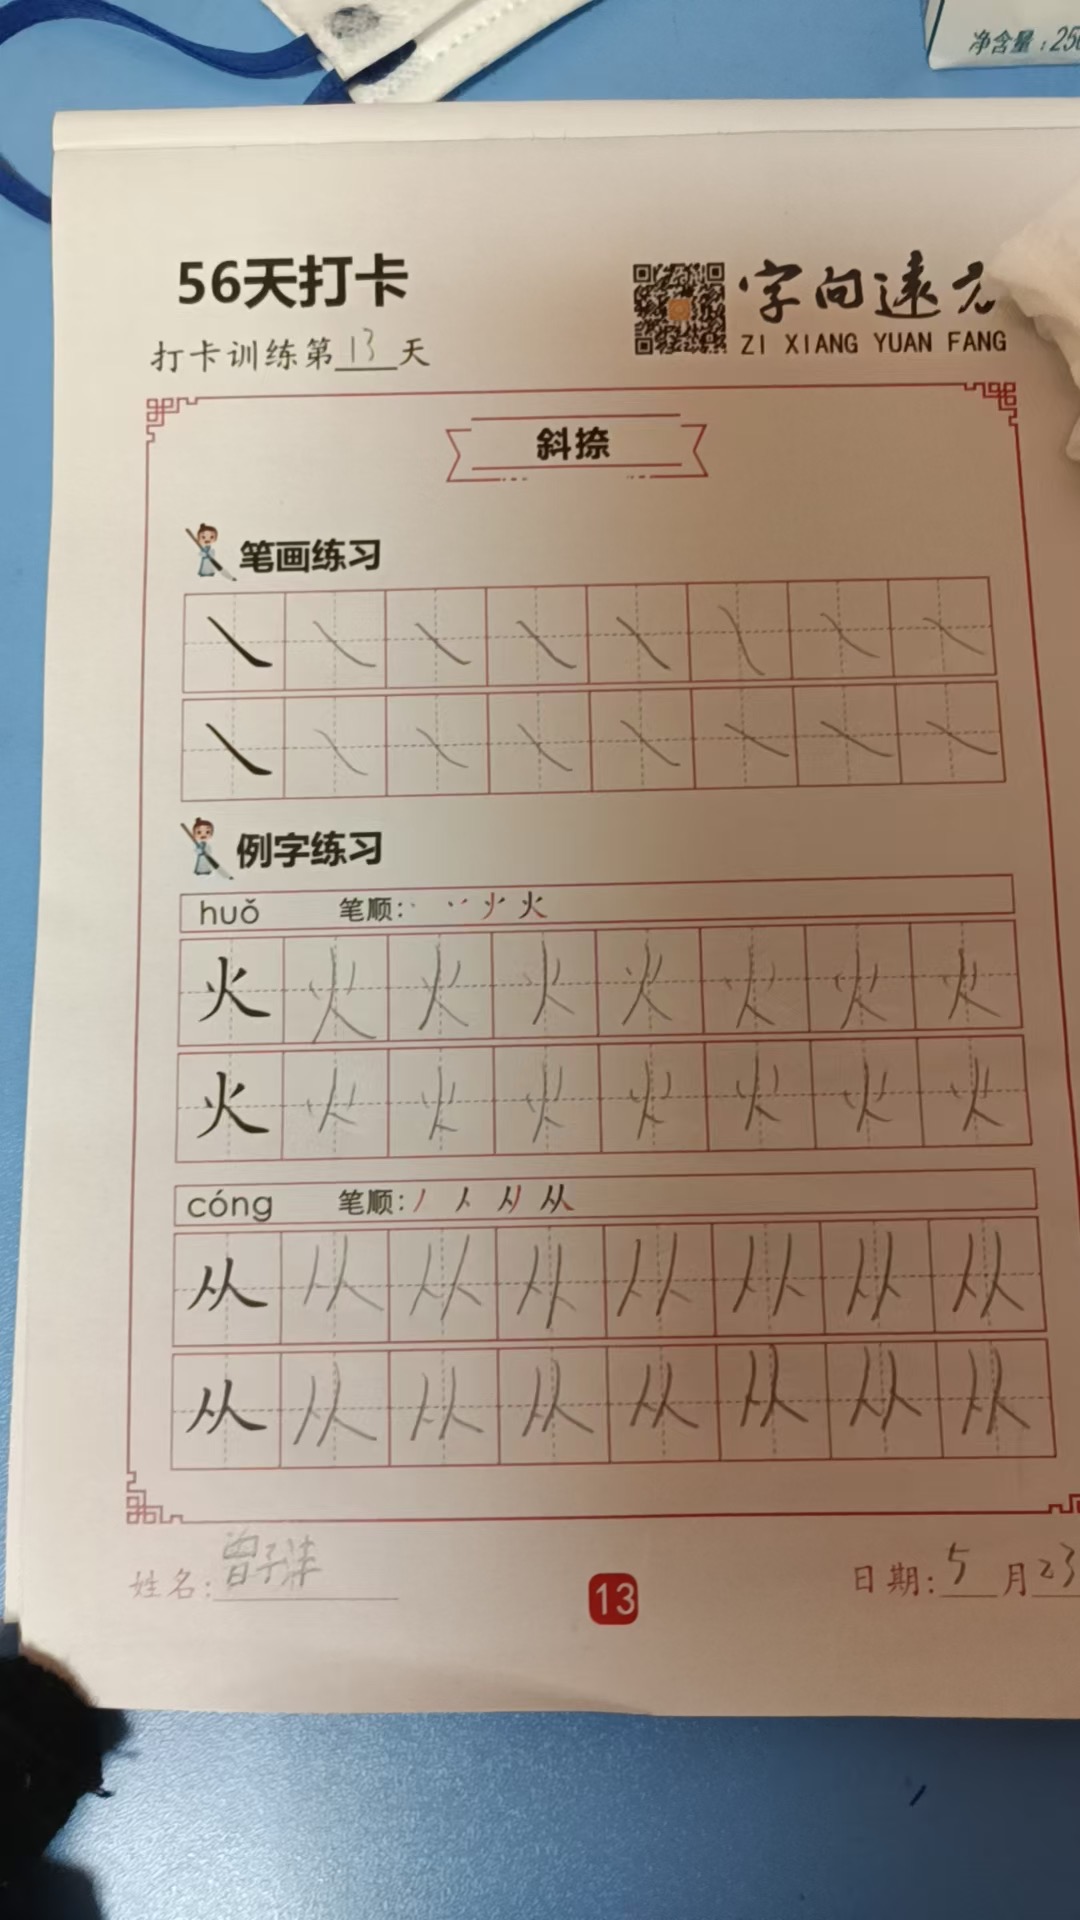 净含量：25
56天打卡
字向远方
ZI XIANG YUAN FANG
打卡训练第13天
斜捺
笔画练习
例字练习
huǒ 笔顺: 火
火 火 火 火 火 火 火 火
火 火 火 火 火 火 火 火
cóng 笔顺: 从
从 从 从 从 从 从 从 从
从 从 从 从 从 从 从 从
姓名: 曾子
日期: 5月23
13